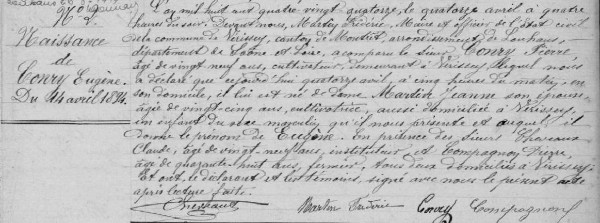 N° 2
Naissance
de
Conry Eugène.
Du 14 avril 1894.
L'an mil huit cent quatre vingt quatorze, le quatorze avril, à quatre
heures du soir. Devant nous, Martin Frédéric, Maire et officier de l'état civil
de la commune de Vérissey, canton de Montret, arrondissement de Louhans,
département de Saône et Loire, a comparu le sieur Conry Pierre
âgé de vingt neuf ans, cultivateur, demeurant à Vérissey, lequel nous
a déclaré que cejourd'hui quatorze avril, à cinq heures du matin, en
son domicile, il lui est né de dame Martin Jeanne son épouse
âgée de vingt cinq ans, cultivatrice, aussi domiciliée à Vérissey,
un enfant du sexe masculin qu'il nous présente et auquel il
donne le prénom de Eugène. En présence des sieurs
Claude, âgé de vingt neuf ans, instituteur, et Compagnon Pierre
âgé de quarante huit ans, fermier, tous deux domiciliés à Vérissey.
Et ont, le déclarant et les témoins, signé avec nous le présent acte
après lecture faite.
Martin Frédéric Conry Compagnon